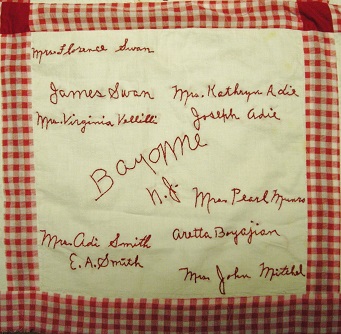 Mrs. Florence Swan
James Swan
Mrs. Kathryn Adie
Mrs. Virginia Vellilli
Joseph Adie
Bayonne
N.J.
Mrs Pearl Munro
Mrs. Adi Smith
Aretta Boyajian
E.A. Smith
Mrs John